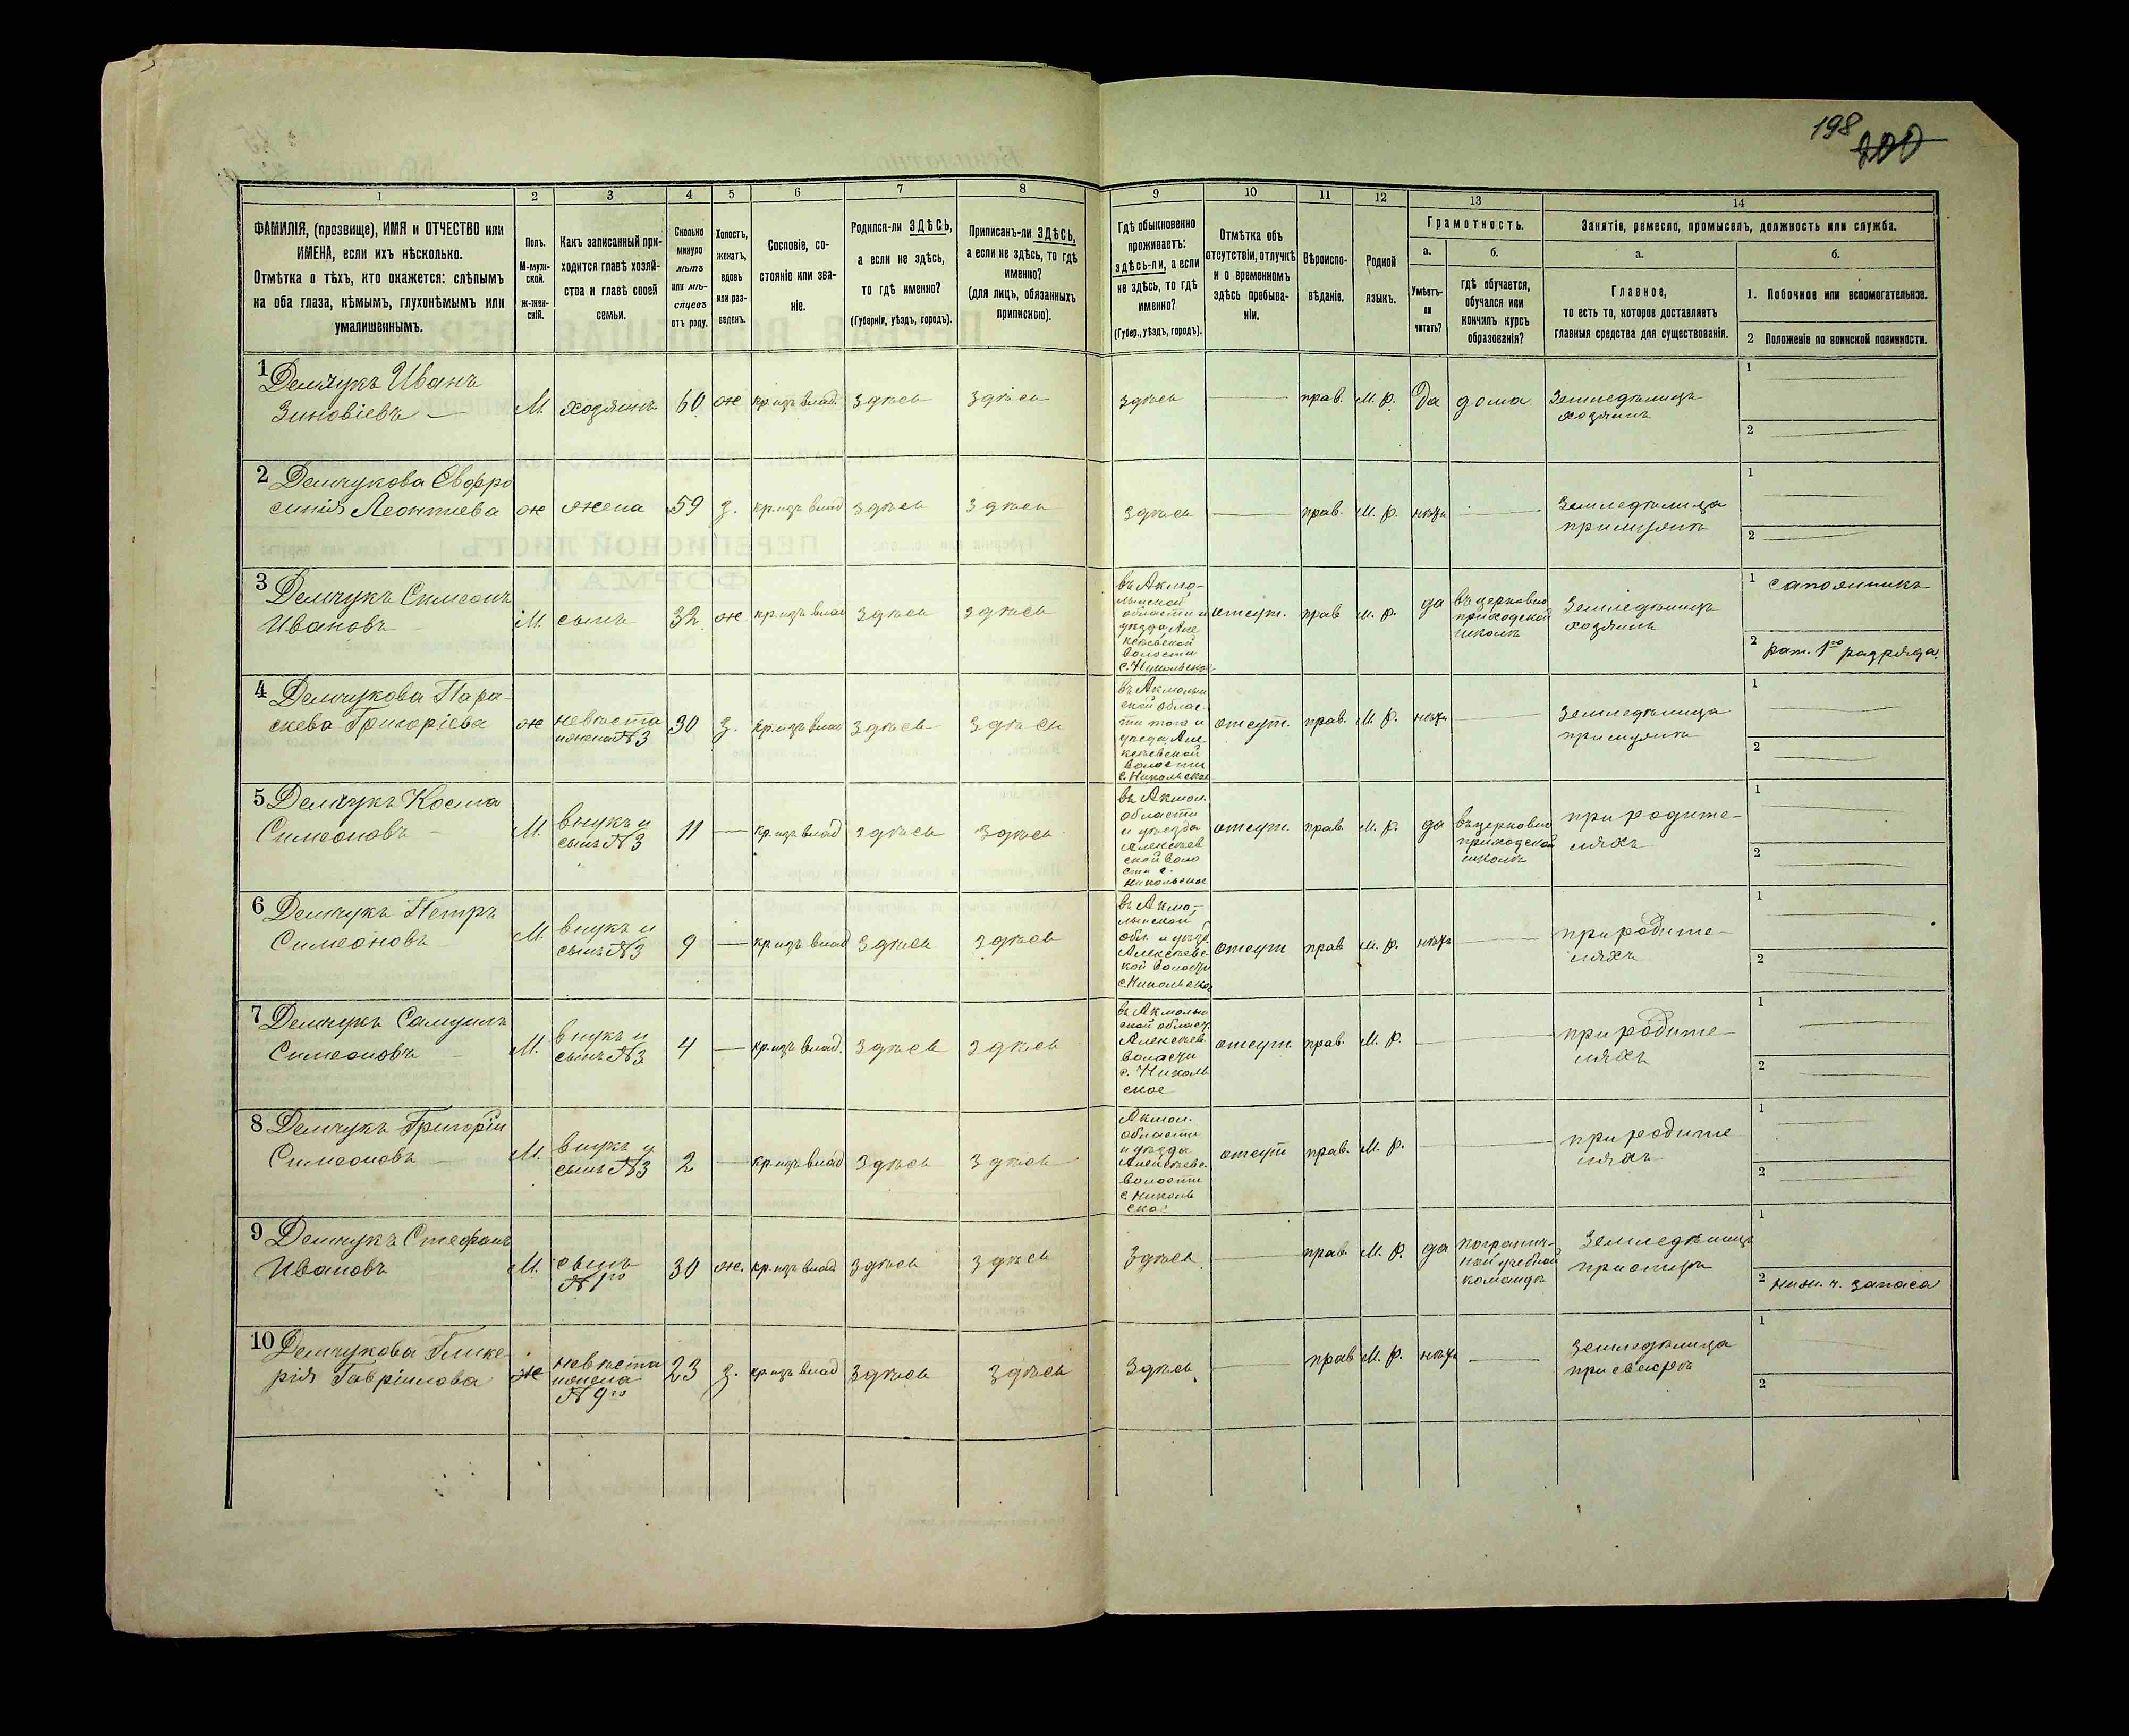 198
200
1
2
3
4
5
6
7
8
9
10
11
12
13
14
ФАМИЛІЯ, (прозвище), ИМЯ и ОТЧЕСТВО или
ИМЕНА, если ихъ нѣсколько.
Отмѣтка о тѣхъ, кто окажется: слѣпымъ
на оба глаза, нѣмымъ, глухонѣмымъ или
умалишеннымъ.
Полъ.
М-муж-
ской.
ж-жен-
скій.
Какъ записанный при-
ходится главѣ хозяй-
ства и главѣ своей
семьи.
Сколько
минуло
лѣтъ
или мѣ-
сяцевъ
отъ роду.
Холостъ,
женатъ,
вдовъ
или раз-
веденъ.
Сословіе, со-
стояніе или зва-
ніе.
Родился-ли ЗДѢСЬ,
а если не здѣсь,
то гдѣ именно?
(Губернія, уѣздъ, городъ).
Приписанъ-ли ЗДѢСЬ,
а если не здѣсь, то гдѣ
именно?
(для лицъ, обязанныхъ
припискою).
Гдѣ обыкновенно
проживаетъ:
здѣсь-ли, а если
не здѣсь, то гдѣ
именно?
(Губер., уѣздъ, городъ).
Отмѣтка объ
отсутствіи, отлучкѣ
и о временномъ
здѣсь пребыва-
ніи.
Вѣроиспо-
вѣданіе.
Родной
языкъ.
Грамотность.
а.
Умѣетъ-
ли
читать?
б.
гдѣ обучается,
обучался или
кончилъ курсъ
образованія?
Занятіе, ремесло, промыселъ, должность или служба.
а.
Главное,
то есть то, которое доставляетъ
главныя средства для существованія.
б.
1. Побочное или вспомогательное.
2 Положеніе по воинской повинности.
1 Демчукъ Иванъ
Зиновіевъ
М. хозяинъ 60 ж кр. изъ влад. здѣсь здѣсь здѣсь прав. М. р. Да дома
Земледѣлецъ
хозяинъ
1
2
2 Демчукова Евфро
синія Леонтиева
ж жена 59 з. кр. изъ влад здѣсь здѣсь здѣсь прав. М. р. нѣтъ
Земледѣлица
при мужѣ
1
2
3 Демчукъ Симеонъ
Ивановъ
М. сынъ 32 ж кр. изъ влад здѣсь здѣсь
въ Акмо-
линской
области и
уѣзда Але
ксѣевской
волости
с. Никольское
отсут. прав м. р. да
въ церковно
приходской
школѣ
Земледѣлецъ
хозяинъ
1 сапожникъ
2 рат. 1го разряда.
4 Демчукова Пара-
скева Григоріева
ж
невѣста
и жена №3
30 з. кр. изъ влад здѣсь здѣсь
въ Акмолин
ской облас-
ти того и
уѣзда, Але
ксѣевской
волости
с. Никольское
отсут. прав. М. р. нѣтъ
Земледѣлица
при мужѣ
1
2
5 Демчукъ Косма
Симеоновъ
М.
внукъ и
сынъ №3
11 кр. изъ влад здѣсь здѣсь
въ Акмол.
области
и уѣзда
Алексѣев
ской воло
сти с.
Никольское
отсут. прав. М. р. да
въ церковно
приходской
школѣ
при родите-
ляхъ
1
2
6 Демчукъ Петръ
Симеоновъ
М.
внукъ и
сынъ №3
9 кр. изъ влад здѣсь здѣсь
въ Акмо-
линской
обл. и уѣзд.
Алексѣевс-
кой волости
с. Никольское
отсут прав м. р. нѣтъ
при родите-
ляхъ
1
2
7 Демчукъ Самуилъ
Симеоновъ
М.
внукъ и
сынъ №3
4 кр. изъ влад. здѣсь здѣсь
въ Акмолин
ской област.
Алексѣев.
волости
с. Николь
ское
отсут прав. М. р.
при родите-
ляхъ
1
2
8 Демчукъ Григорій
Симеоновъ
М.
внукъ и
сынъ №3
2 кр. изъ влад здѣсь здѣсь
Акмол.
области
и уѣзда
Алексѣевс.
волости
с. Николь
ское
отсут прав. М. р.
при родите
ляхъ
1
2
9 Демчукъ Стефанъ
Ивановъ
М.
сынъ
№ 1го
30 ж. кр. изъ влад здѣсь здѣсь здѣсь прав. М. р. да
погранич-
ной учебной
командѣ
Земледѣлецъ
при отцѣ
1
2 ниж. ч. запаса
10 Демчукова Глике-
рія Гавріилова
ж
невѣста
и жена
№ 9го
23 з. кр. изъ влад здѣсь здѣсь здѣсь прав М. р. нѣтъ
Земледѣлица
при свекрѣ
1
2